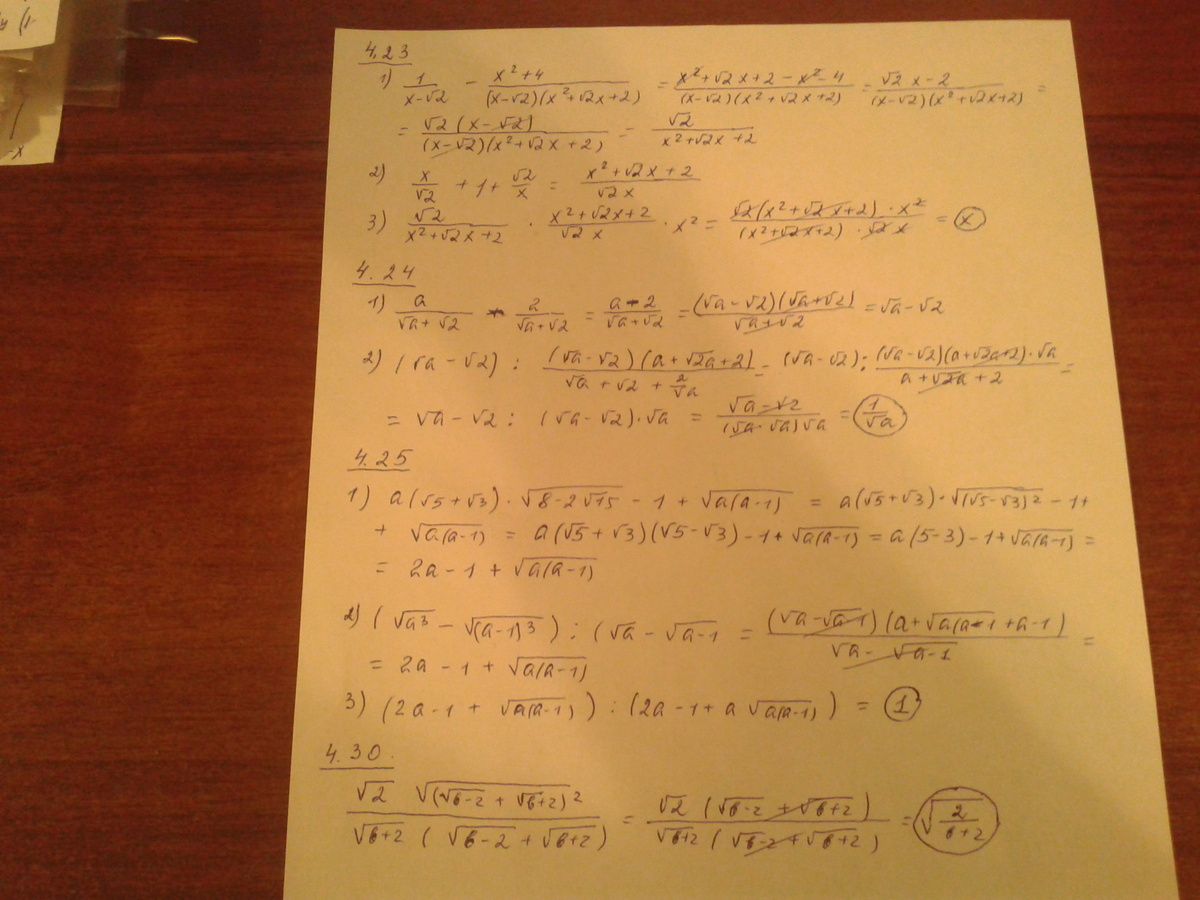 4.23
1) 1/(x-√2) - (x²+4)/((x-√2)(x²+√2x+2)) = (x²+√2x+2-x²-4)/((x-√2)(x²+√2x+2)) = (√2x-2)/((x-√2)(x²+√2x+2)) =
= √2(x-√2)/((x-√2)(x²+√2x+2)) = √2/(x²+√2x+2)
2) x/√2 + 1 + √2/x = (x²+√2x+2)/(√2x)
3) √2/(x²+√2x+2) · (x²+√2x+2)/(√2x) · x² = (√2(x²+√2x+2)·x²)/((x²+√2x+2)·√2x) = x
4.24
1) a/(√a+√2) - 2/(√a+√2) = (a-2)/(√a+√2) = ((√a-√2)(√a+√2))/(√a+√2) = √a-√2
2) (√a-√2) : ((√a-√2)(a+√2a+2))/(√a+√2+2/√a) = (√a-√2) : ((√a-√2)(a+√2a+2)·√a)/(a+√2a+2) =
= √a-√2 : (√a-√2)·√a = (√a-√2)/((√a-√a)√a) = 1/√a
4.25
1) a(√5+√3)·√(8-2√15) - 1 + √(a(a-1)) = a(√5+√3)·√((√5-√3)²) - 1 +
+ √(a(a-1)) = a(√5+√3)(√5-√3) - 1 + √(a(a-1)) = a(5-3) - 1 + √(a(a-1)) =
= 2a-1+√(a(a-1))
2) (√a³ - √((a-1)³)) : (√a - √(a-1) = ((√a-√(a-1))(a+√(a(a-1)+a-1))/(√a-√(a-1)) =
= 2a-1+√(a(a-1))
3) (2a-1+√(a(a-1))) : (2a-1+a√(a(a-1))) = 1
4.30.
(√2 √((√(b-2)+√(b+2))²))/(√(b+2)(√(b-2)+√(b+2))) = (√2(√(b-2)+√(b+2)))/(√(b+2)(√(b-2)+√(b+2))) = √(2/(b+2))